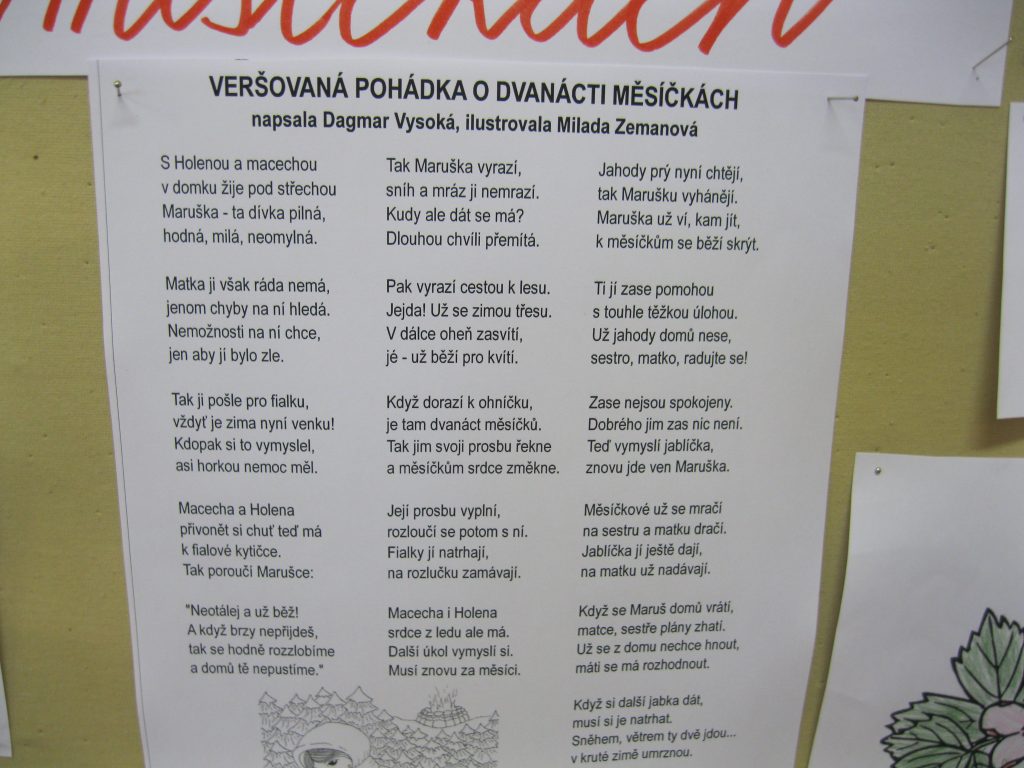 VERŠOVANÁ POHÁDKA O DVANÁCTI MĚSÍČKÁCH
napsala Dagmar Vysoká, ilustrovala Milada Zemanová
S Holenou a macechou
v domku žije pod střechou
Maruška - ta dívka pilná,
hodná, milá, neomylná.
Matka ji však ráda nemá,
jenom chyby na ní hledá.
Nemožnosti na ní chce,
jen aby jí bylo zle.
Tak ji pošle pro fialku,
vždyť je zima nyní venku!
Kdopak si to vymyslel,
asi horkou nemoc měl.
Macecha a Holena
přivonět si chuť teď má
k fialové kytičce.
Tak poroučí Marušce:
"Neotálej a už běž!
A když brzy nepřijdeš,
tak se hodně rozzlobíme
a domů tě nepustíme."
Tak Maruška vyrazí,
sníh a mráz ji nemrazí.
Kudy ale dát se má?
Dlouhou chvíli přemítá.
Pak vyrazí cestou k lesu.
Jejda! Už se zimou třesu.
V dálce oheň zasvítí,
jé - už běží pro kvítí.
Když dorazí k ohníčku,
je tam dvanáct měsíčků.
Tak jim svoji prosbu řekne
a měsíčkům srdce změkne.
Její prosbu vyplní,
rozloučí se potom s ní.
Fialky jí natrhají,
na rozlučku zamávají.
Macecha i Holena
srdce z ledu ale má.
Další úkol vymyslí si.
Musí znovu za měsíci.
Jahody prý nyní chtějí,
tak Marušku vyhánějí.
Maruška už ví, kam jít,
k měsíčkům se běží skrýt.
Ti jí zase pomohou
s touhle těžkou úlohou.
Už jahody domů nese,
sestro, matko, radujte se!
Zase nejsou spokojeny.
Dobrého jim zas nic není.
Teď vymyslí jablíčka,
znovu jde ven Maruška.
Měsíčkové už se mračí
na sestru a matku dračí.
Jablíčka jí ještě dají,
na matku už nadávají.
Když se Maruš domů vrátí,
matce, sestře plány zhatí.
Už se z domu nechce hnout,
máti se má rozhodnout.
Když si další jabka dát,
musí si je natrhat.
Sněhem, větrem ty dvě jdou...
v kruté zimě umrznou.